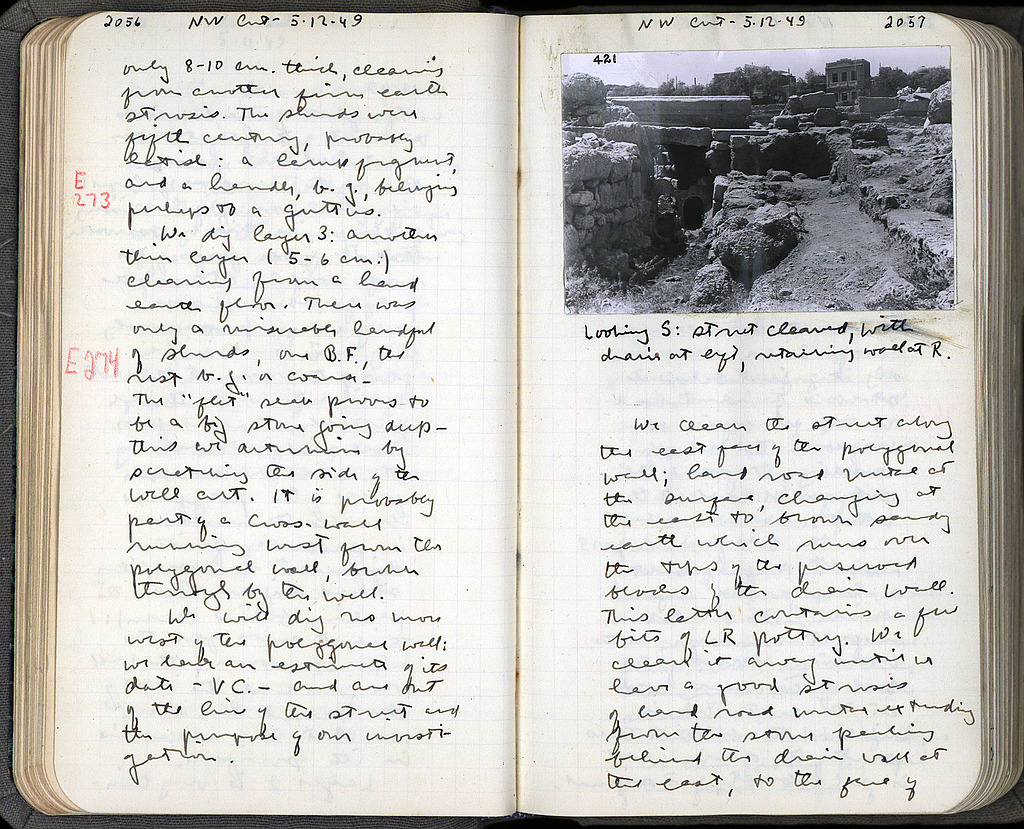 2056 NW Cut - 5.12.49
only 8-10 cm. thick, cleaning
from another firm earth
strosis. The sherds were
fifth century, probably
: a lamp fragment,
E
273
and a handle, b.g., belonging
perhaps to a guttus.
We dig layer 3: another
thin layer (5-6 cm.)
cleaning from a hard
earth floor. There was
only a miserable handful
E 274
of sherds, one B.F., the
rest b.g. or coarse-
The "flat" rock proves to
be a big stone going deep-
this we determine by
scratching the side of the
well cut. It is probably
part of a cross-wall
running west from the
polygonal wall, broken
through by the well.
We will dig no more
west of the polygonal wall:
we have an estimate of its
date - V C. - and are out
of the line of the street and
the purpose of our investi-
gation.
NW Cut - 5.12.49 2057
421
Looking S: street cleaned, with
drain at left, retaining wall at R.
We clean the street along
the east face of the polygonal
wall; hard road metal at
the surface, changing at
the east to brown sandy
earth which runs over
the tops of the preserved
blocks of the drain wall.
This latter contains a few
bits of LR pottery. We
clean it away until we
have a good strosis
of hard road metal extending
from the stone packing
behind the drain wall at
the east, to the face of